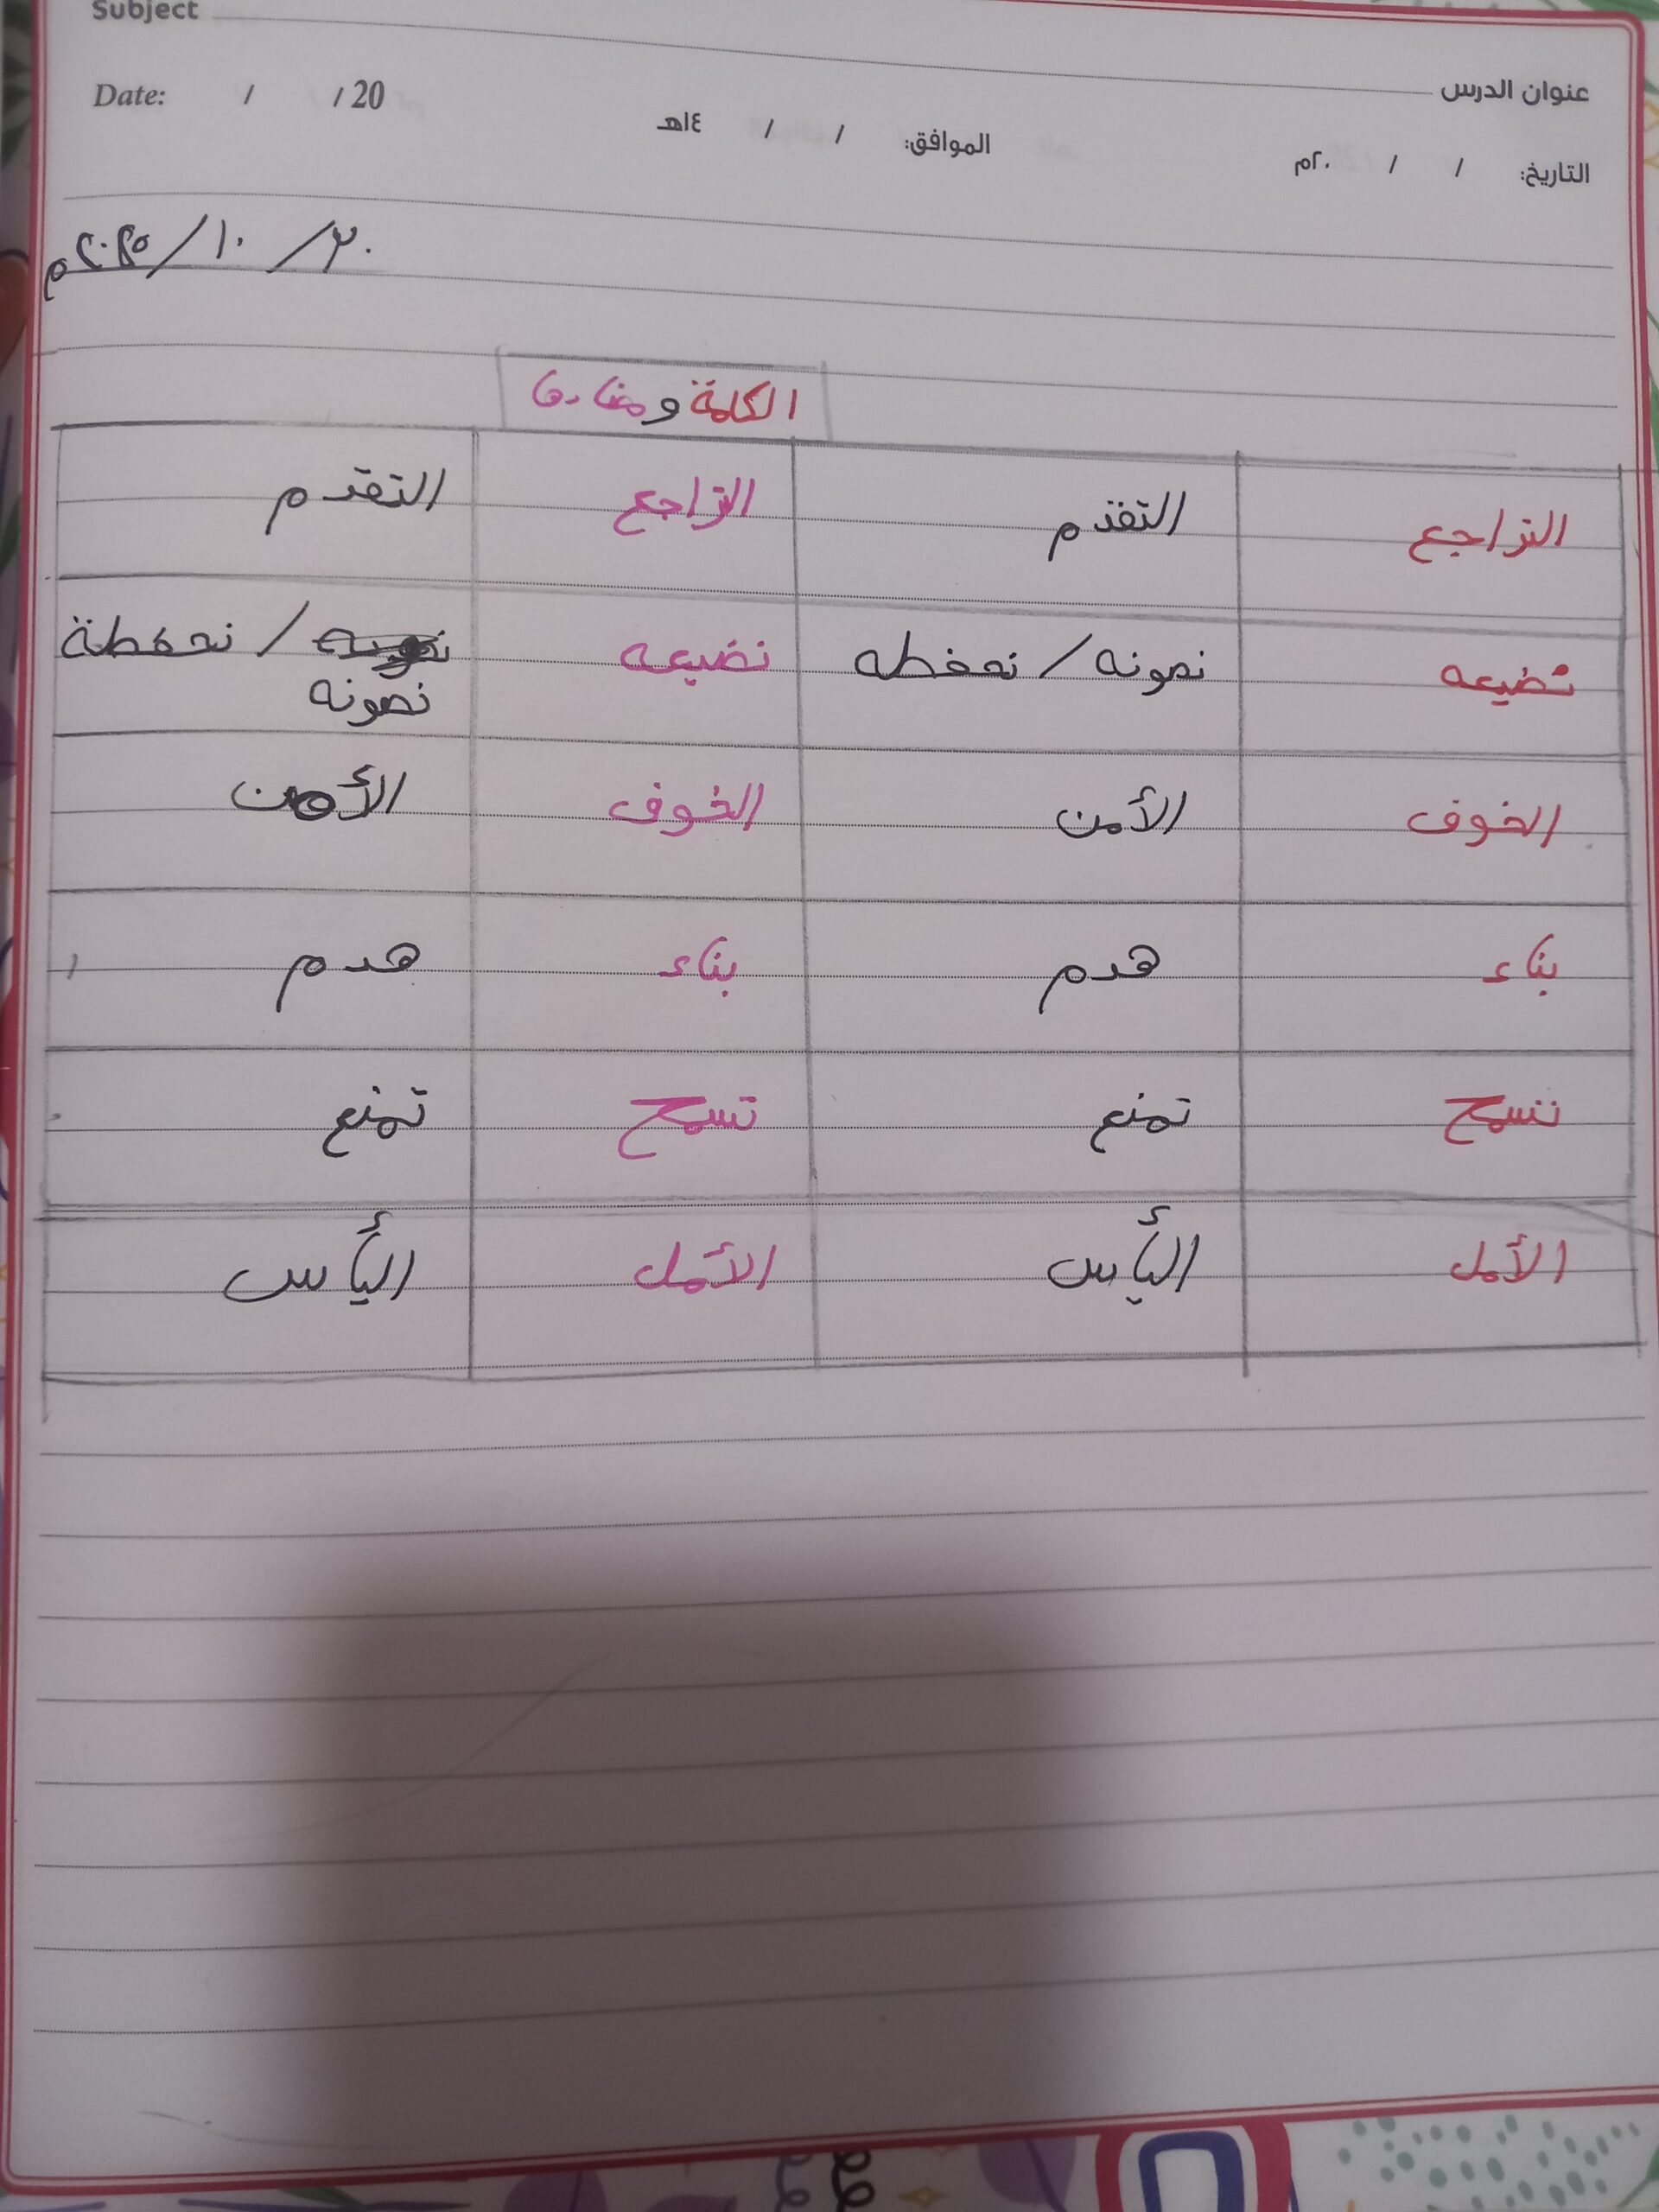 Subject
عنوان الدرس
Date: / / 20
التاريخ: / / ٢٠م الموافق: / / ١٤هـ
٢٠ / ١٠ / ٢٠٢٥م
الكلمة و
التراجع التقدم التراجع التقدم
نضيعه نصونه / نحفظه نضيعه / نحفظة
نصونه
الخوف الأمن الخوف الأمن
بناء هدم بناء هدم
تسمح تمنع تسمح تمنع
الأمل اليأس الأمل اليأس